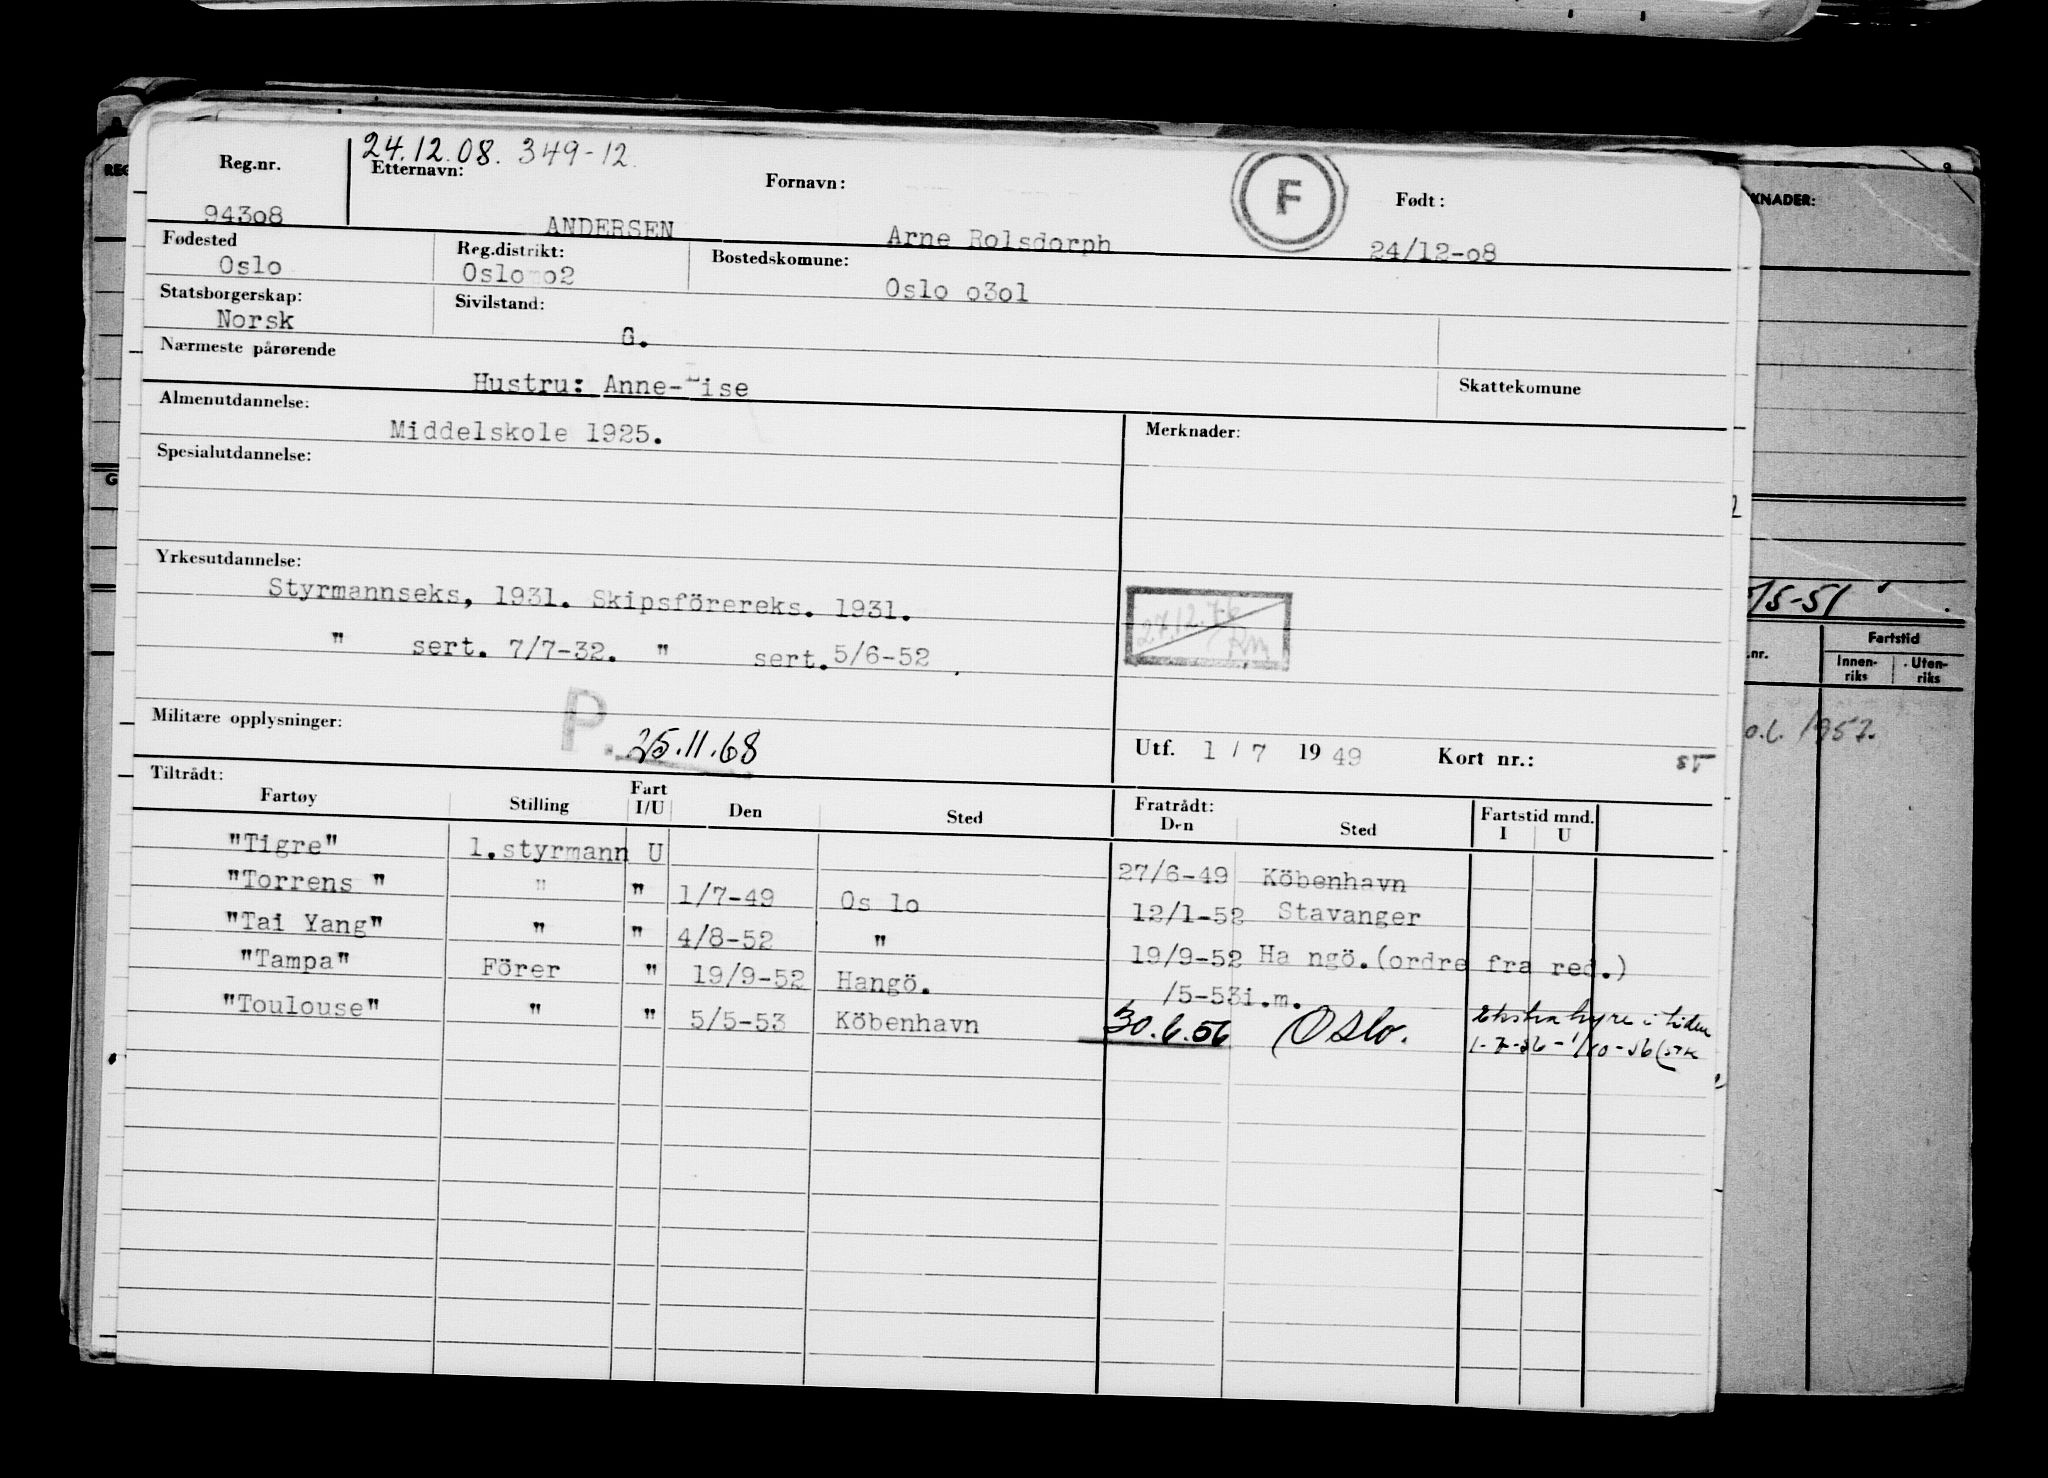 24.12.08. 349-12.
Reg.nr. Etternavn: Fornavn: F Født:
943o8 ANDERSEN Arne Rolsdorph 24/12-o8
Fødested Reg.distrikt: Bostedskomune:
Oslo Oslo o2 Oslo o3o1
Statsborgerskap: Sivilstand:
Norsk G.
Nærmeste pårørende
Hustru: Anne-Lise Skattekomune
Almenutdannelse: Merknader:
Middelskole 1925.
Spesialutdannelse:
Yrkesutdannelse:
Styrmannseks, 1931. Skipsförereks. 1931.
" sert. 7/7-32. " sert. 5/6-52
Militære opplysninger: P. 25.11.68
Utf. 1/7 1949 Kort nr.:
Tiltrådt: Fratrådt:
Fartøy Stilling Fart I/U Den Sted Den Sted Fartstid mnd. I U
"Tigre" 1.styrmann U 27/6-49 Köbenhavn
"Torrens " " " 1/7-49 Os lo 12/1-52 Stavanger
"Tai Yang" " " 4/8-52 " 19/9-52 Ha ngö.(ordre fra red.)
"Tampa" Förer " 19/9-52 Hangö. /5-53i.m.
"Toulouse" " " 5/5-53 Köbenhavn 30.6.56 Oslo. Ekstra hyre i tiden
1-7-56-1/10-56
KNADER:
/5-51
.nr. Fartstid
Innen-riks Uten-riks
1957.